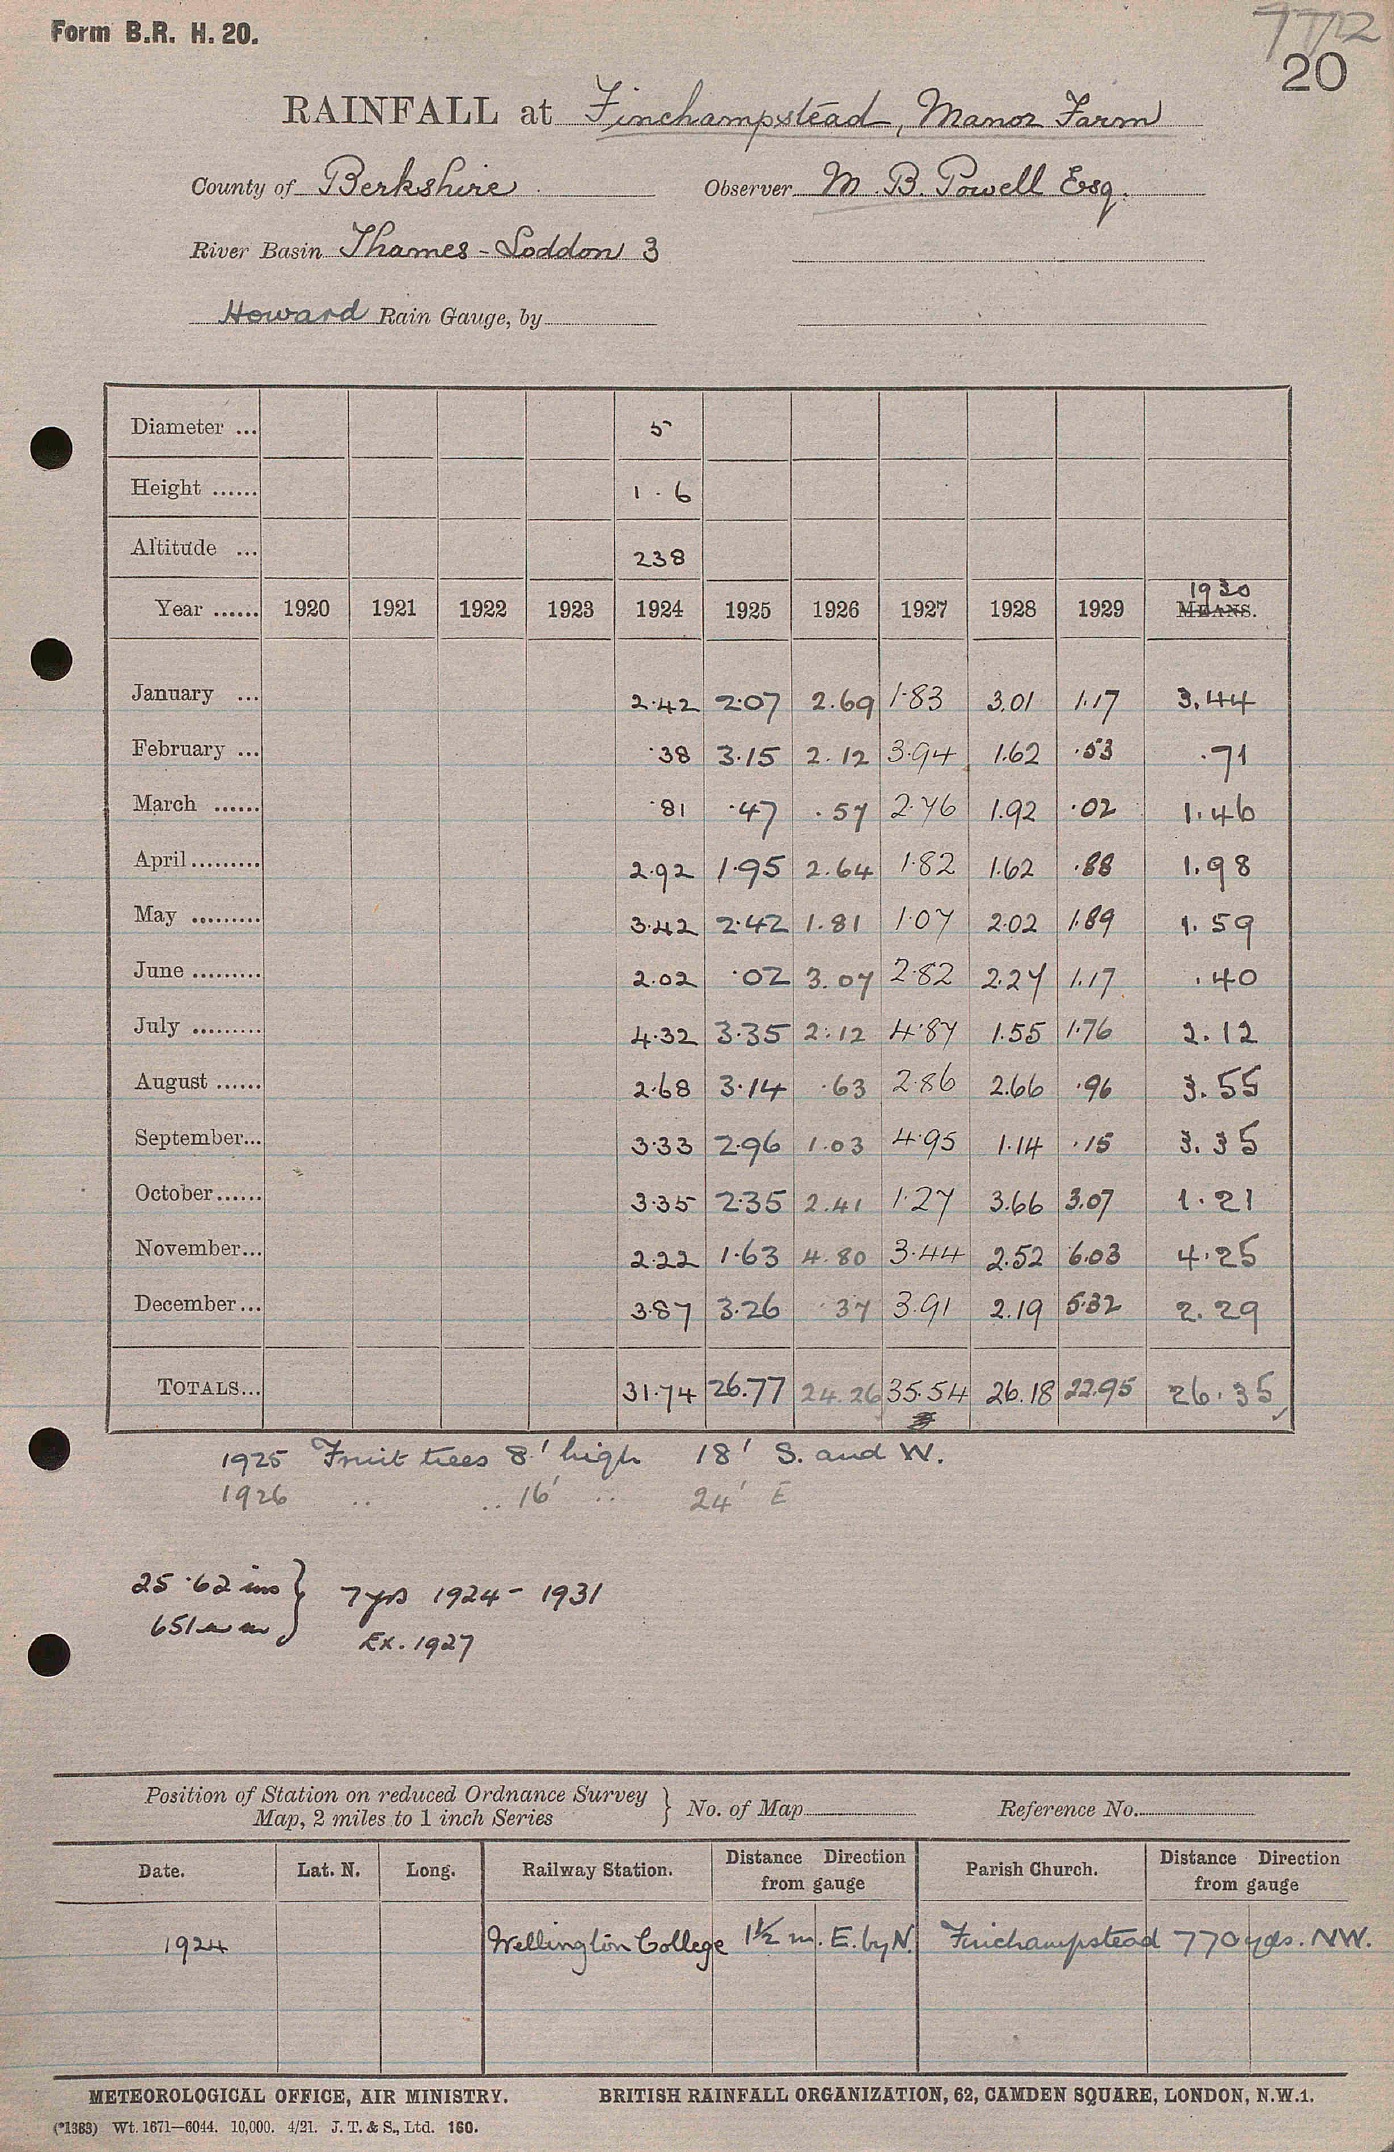 Form B.R. H. 20.
7712
20
RAINFALL at Finchampstead, Manor Farm
County of Berkshire Observer M. B. Powell Esq.
River Basin Thames - Loddon 3
Howard Rain Gauge, by
Diameter ... 5
Height ...... 1 . 6
Altitude ... 238
1930
Year ...... 1920 1921 1922 1923 1924 1925 1926 1927 1928 1929 MEANS.
January ... 2.42 2.07 2.69 1.83 3.01 1.17 3.44
February ... .38 3.15 2.12 3.94 1.62 .53 .71
March ...... .81 .47 .57 2.76 1.92 .02 1.46
April ......... 2.92 1.95 2.64 1.82 1.62 .88 1.98
May ......... 3.42 2.42 1.81 1.07 2.02 1.89 1.59
June ......... 2.02 .02 3.07 2.82 2.27 1.17 .40
July ......... 4.32 3.35 2.12 4.87 1.55 1.76 2.12
August ...... 2.68 3.14 .63 2.86 2.66 .96 3.55
September... 3.33 2.96 1.03 4.95 1.14 .15 3.35
October ...... 3.35 2.35 2.41 1.27 3.66 3.07 1.21
November... 2.22 1.63 4.80 3.44 2.52 6.03 4.25
December... 3.87 3.26 .37 3.91 2.19 5.32 2.29
TOTALS... 31.74 26.77 24.26 35.54 26.18 22.95 26.35
1925 Fruit trees 8' high 18' S. and W.
1926 .. .. 16' .. 24' E
25.62 ins } 7 yrs 1924 - 1931
651 mm Ex. 1927
Position of Station on reduced Ordnance Survey
Map, 2 miles to 1 inch Series } No. of Map Reference No.
Date. Lat. N. Long. Railway Station. Distance Direction from gauge Parish Church. Distance Direction from gauge
1924 Wellington College 1½ m. E. by N. Finchampstead 770 yds. NW.
METEOROLOGICAL OFFICE, AIR MINISTRY. BRITISH RAINFALL ORGANIZATION, 62, CAMDEN SQUARE, LONDON, N.W.1.
(*1383) Wt. 1671—6044. 10,000. 4/21. J. T. & S., Ltd. 160.